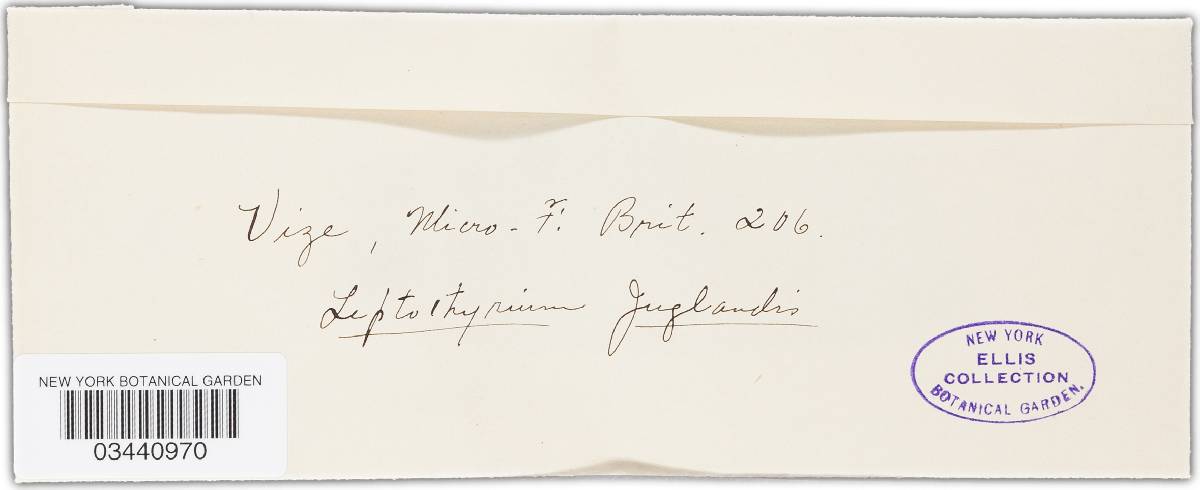 Vize, Micro-F. Brit. 206.
Leptothyrium Juglandis
NEW YORK
ELLIS
COLLECTION
BOTANICAL GARDEN.
NEW YORK BOTANICAL GARDEN
03440970